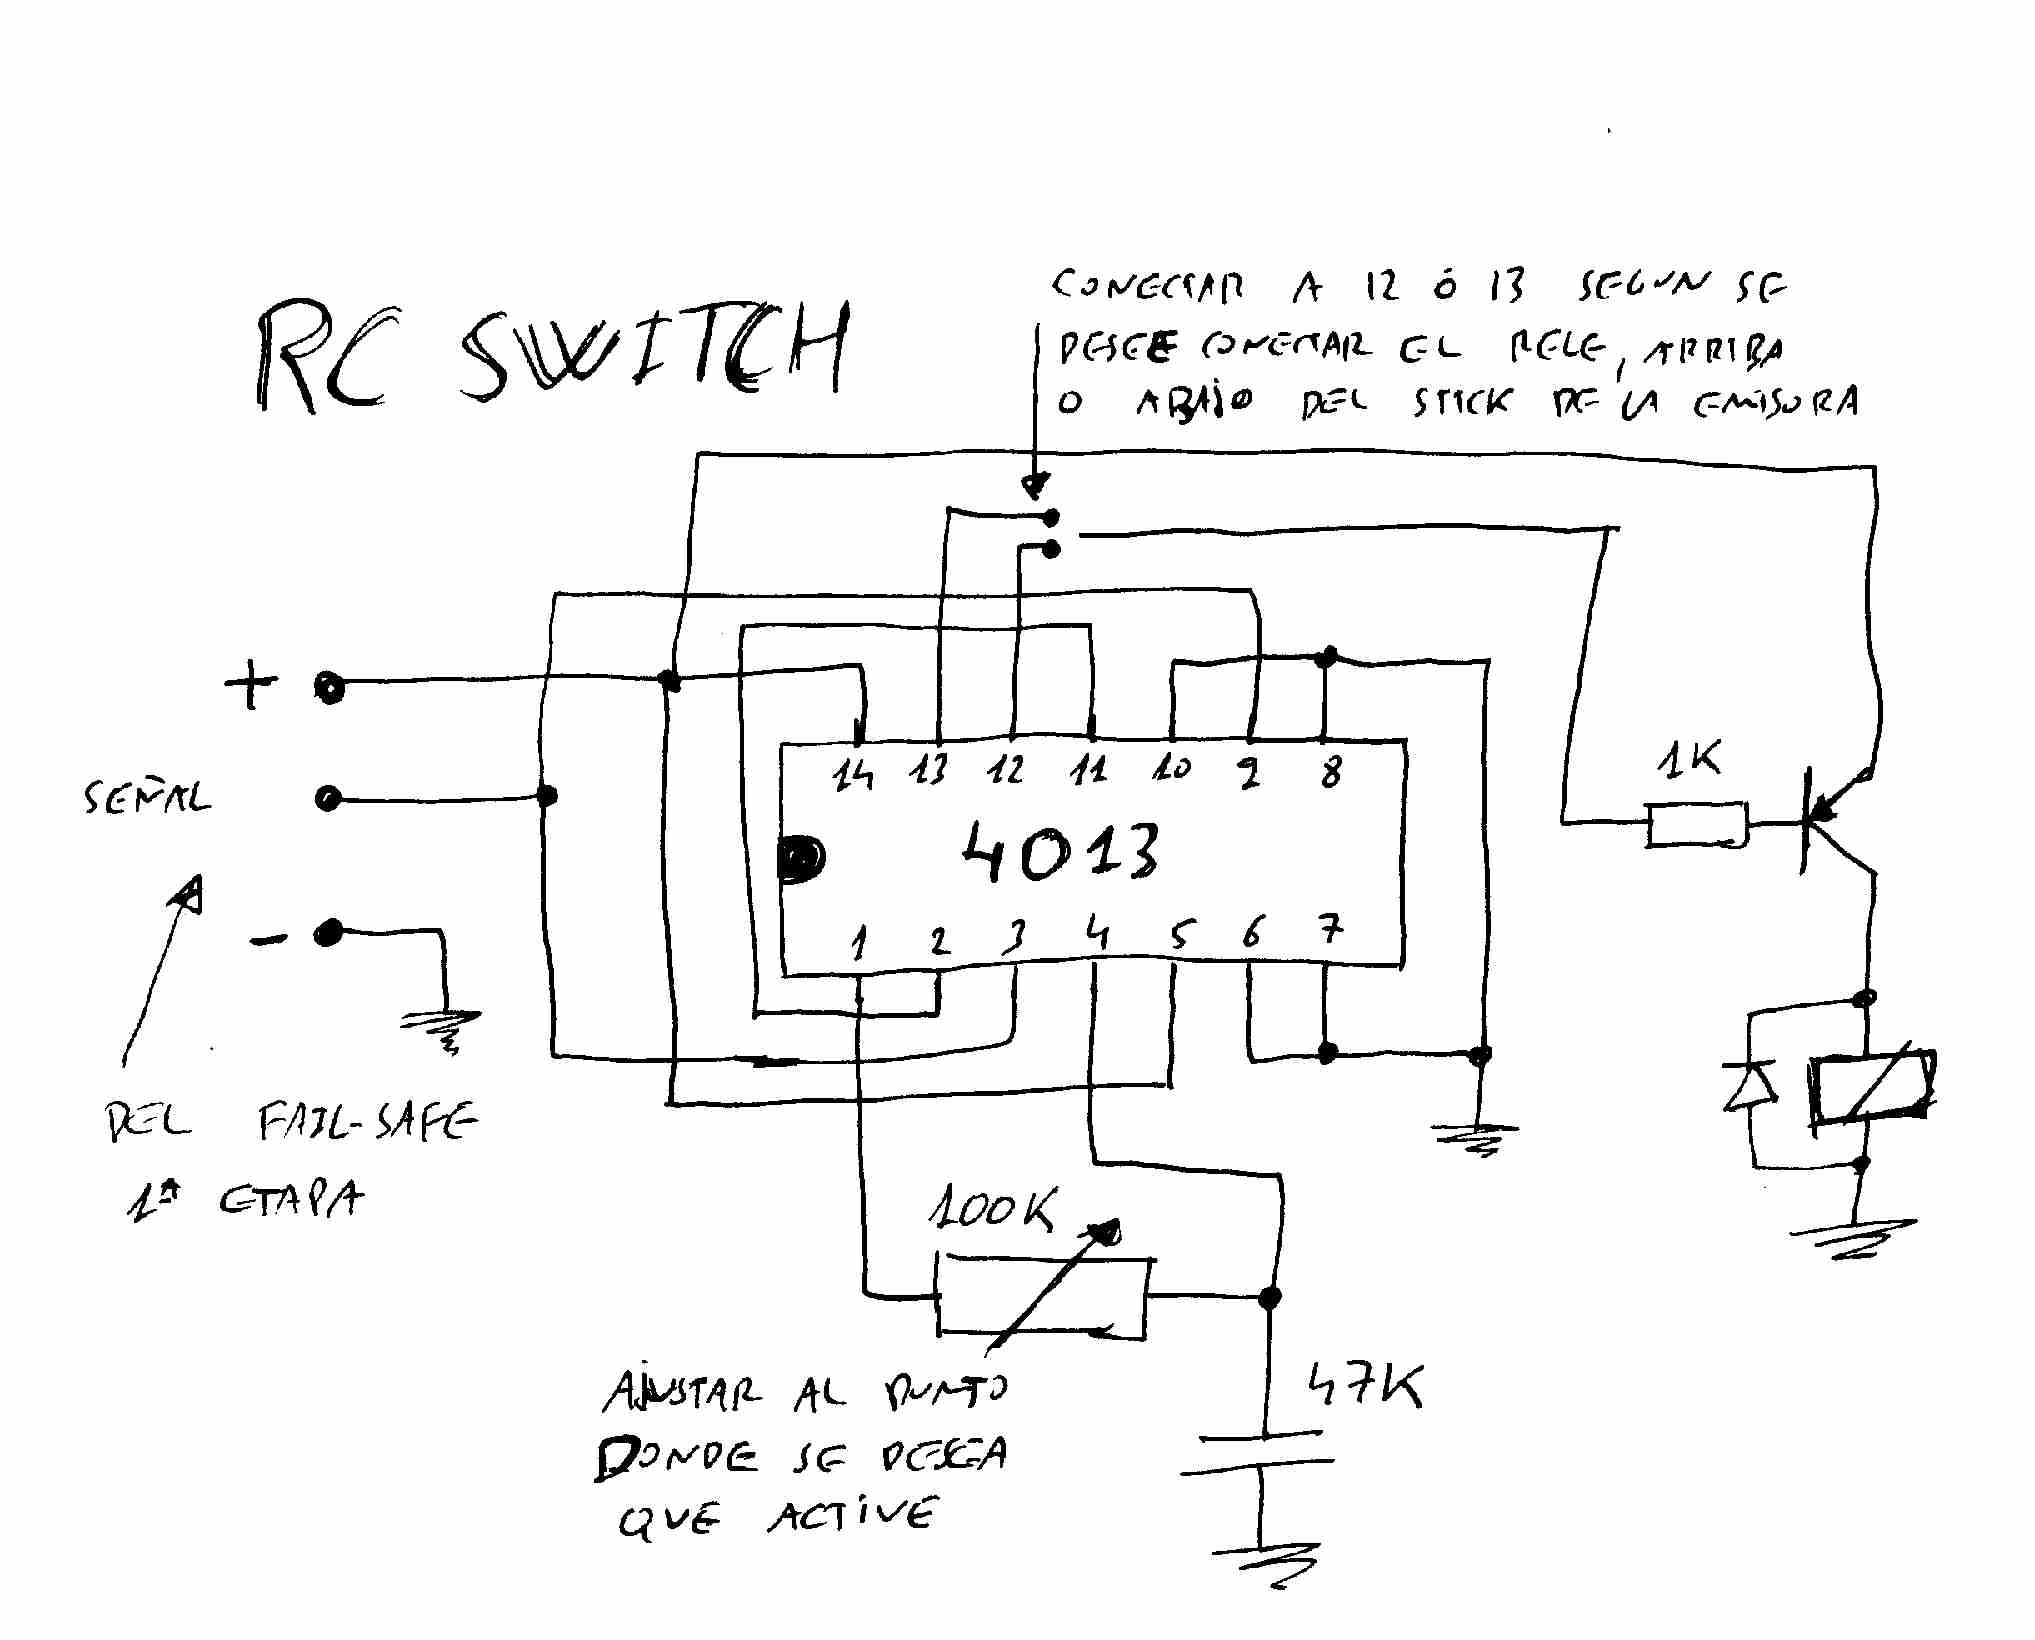 RC SWITCH
CONECTAR A 12 Ó 13 SEGUN SE
DESEE CONECTAR EL RELE, ARRIBA
O ABAJO DEL STICK DE LA EMISORA
+
SEÑAL
-
DEL FAIL-SAFE
1ª ETAPA
14 13 12 11 10 9 8
4013
1 2 3 4 5 6 7
1K
100K
AJUSTAR AL PUNTO
DONDE SE DESEA
QUE ACTIVE
47K